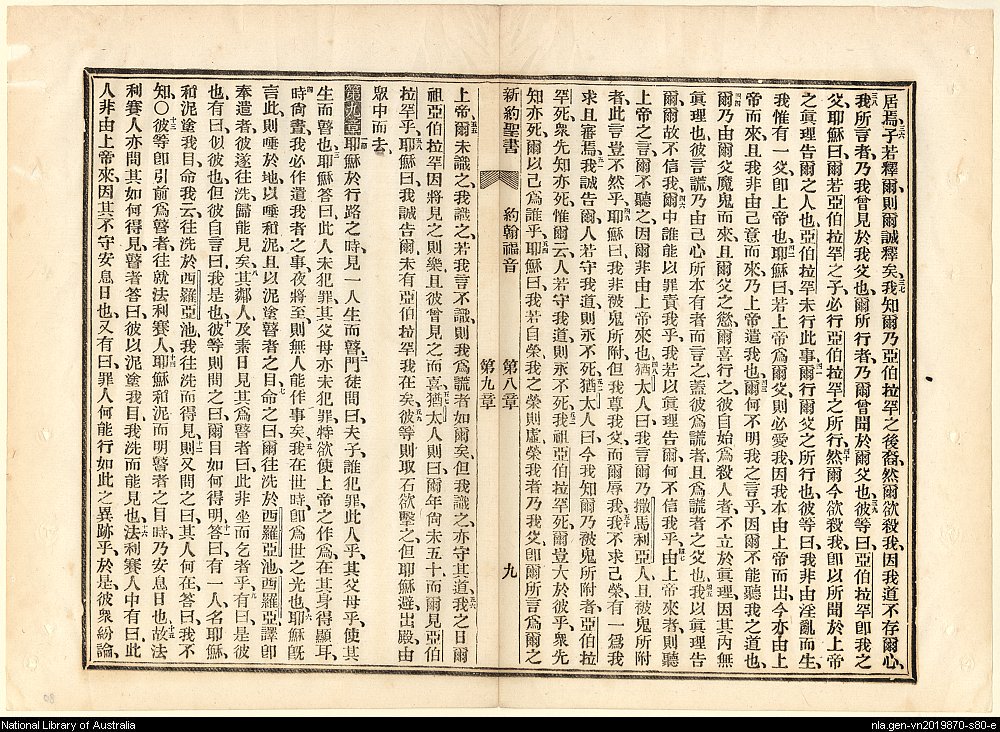 居焉子若釋爾、則爾誠釋矣、我知爾乃亞伯拉罕之後裔、然爾欲殺我、因我道不存爾心、
我所言者、乃我曾見於我父也、爾所行者、乃爾曾聞於爾父也、彼等曰、亞伯拉罕卽我之
父、耶穌曰、爾若亞伯拉罕之子、必行亞伯拉罕之所行、然爾今欲殺我、卽以所聞於上帝
之眞理告爾之人也、亞伯拉罕未行此事、爾行爾父之所行也、彼等曰、我非由淫亂而生、
我惟有一父、卽上帝也、耶穌曰、若上帝爲爾父、則必愛我、因我本由上帝而出、今亦由上
帝而來、且我非由己意而來、乃上帝遣我也、爾何不明我之言乎、因爾不能聽我之道也、
爾乃由爾父魔鬼而來、且爾父之慾、爾喜行之、彼自始爲殺人者、不立於眞理、因其內無
眞理也、彼言謊、乃由己心所本有者而言之、蓋彼爲謊者、且爲謊者之父也、我以眞理告
爾、爾故不信我、爾中誰能以罪責我乎、我若以眞理告爾、何不信我乎、由上帝來者、則聽
上帝之言、爾不聽之、因爾非由上帝來也、猶太人曰、我言爾乃撒馬利亞人、且被鬼所附
者、此言豈不然乎、耶穌曰、我非被鬼所附、但我尊我父、而爾辱我、我不求己榮、有一爲我
求且審焉、我誠告爾、人若守我道、則永不死、猶太人曰、今我知爾乃被鬼所附者、亞伯拉
罕死、衆先知亦死、惟爾云、人若守我道、則永不死、我祖亞伯拉罕死、爾豈大於彼乎、衆先
知亦死、爾以己爲誰乎、耶穌曰、我若自榮、我之榮則虛、榮我者乃我父、卽爾所言爲爾之
新約聖書 約翰福音 第八章 第九章 九
上帝、爾未識之、我識之、若我言不識、則我爲謊者如爾矣、但我識之、亦守其道、我之日、爾
祖亞伯拉罕因將見之則樂、且彼曾見之而喜、猶太人則曰、爾年尙未五十、而爾見亞伯
拉罕乎、耶穌曰、我誠告爾、未有亞伯拉罕、我在矣、彼等則取石欲擊之、但耶穌避出殿、由
衆中而去、
第九章 耶穌於行路之時、見一人生而瞽、門徒問曰、夫子、誰犯罪、此人乎、其父母乎、使其
生而瞽也、耶穌答曰、此人未犯罪、其父母亦未犯罪、特欲使上帝之作爲在其身得顯耳、
時尙晝、我必作遣我者之事、夜將至、則無人能作事矣、我在世時、卽爲世之光也、耶穌旣
言此、則唾於地、以唾和泥、且以泥塗瞽者之目、命之曰、爾往洗於西羅亞池、西羅亞譯卽
奉遣者、彼遂往洗、歸能見矣、其鄰人及素日見其爲瞽者曰、此非坐而乞者乎、有曰是彼
也、有曰似彼也、但彼自言曰、我是也、彼等則問之曰、爾目如何得明、答曰、有一人名耶穌、
和泥塗我目、命我云、往洗於西羅亞池、我往洗而得見、則又問之曰、其人何在、答曰、我不
知、〇彼等卽引前爲瞽者、往就法利賽人、耶穌和泥而明瞽者之目時、乃安息日也、故法
利賽人亦問其如何得見、瞽者答曰、彼以泥塗我目、我洗而能見也、法利賽人中有曰、此
人非由上帝來、因其不守安息日也、又有曰、罪人何能行如此之異跡乎、於是彼衆紛論、
National Library of Australia
nla.gen-vn2019870-s80-e